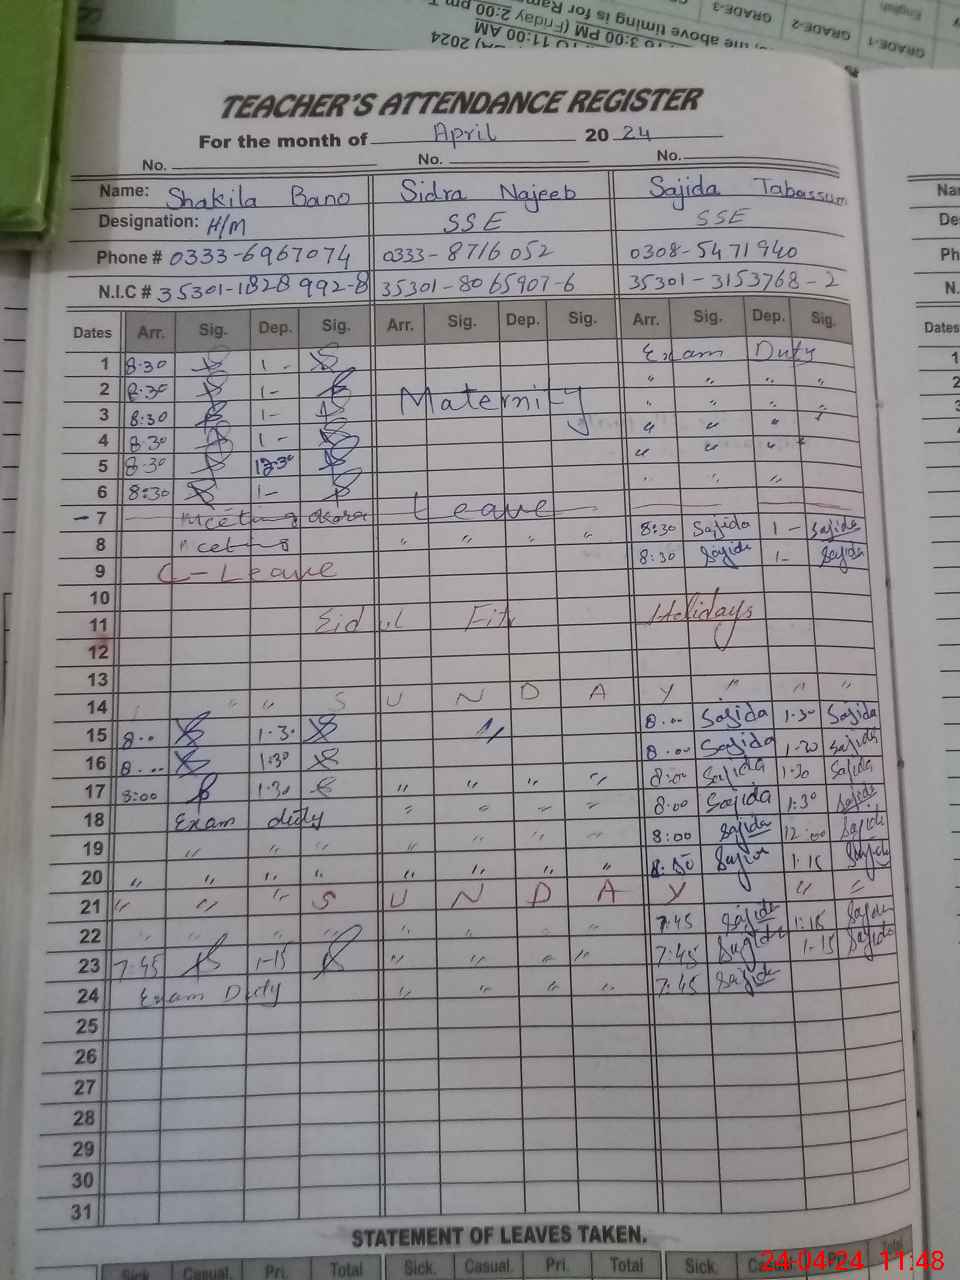 GRADE-1 GRADE-2 GRADE-3
English
the above timing is for Ram
3:00 PM (Friday 2:00 pm
11:00 AM
2024
TEACHER'S ATTENDANCE REGISTER
For the month of April 2024
No. No. No.
Name: Shakila Bano Sidra Najeeb Sajida Tabassum
Designation: H/M SSE SSE
Phone # 0333-6967074 0333-8716052 0308-5471940
N.I.C # 35301-1828992-8 35301-8065907-6 35301-3153768-2
Dates Arr. Sig. Dep. Sig. Arr. Sig. Dep. Sig. Arr. Sig. Dep. Sig.
1 8:30 1- Exam Duty
2 8:30 1- Maternity " " " "
3 8:30 1- " " " "
4 8:30 1- " " "
5 8:30 12:30 " " "
6 8:30 1- Leave " " "
7 Meeting Okara
8 Meeting " " " " 8:30 Sajida 1- Sajida
9 C-Leave 8:30 Sajida 1- Sajida
10
11 Eid ul Fitr Holidays
12
13
14 " " S U N D A Y " " "
15 8.. 1.30 " 8... Sajida 1.30 Sajida
16 8... 1:30 8.00 Sajida 1-30 Sajida
17 8:00 1.30 " " " " 8:00 Sajida 1.30 Sajida
18 Exam duty " " " " 8:00 Sajida 1:30 Sajida
19 " " " " " " " 8:00 Sajida 12:00 Sajida
20 " " " " " " " " Sajida 1.15 Sajida
21 " " " S U N D A Y " "
22 " " " " " " " " 7:45 Sajida 1:15 Sajida
23 7:45 1-15 " " " " 7:45 Sajida 1-15 Sajida
24 Exam Duty " " " " 7:45 Sajida
25
26
27
28
29
30
31
STATEMENT OF LEAVES TAKEN.
Sick. Casual. Pri. Total Sick. Casual. Pri. Total Sick. Casual. Pri. Total
24-04-24 11:48
Dates